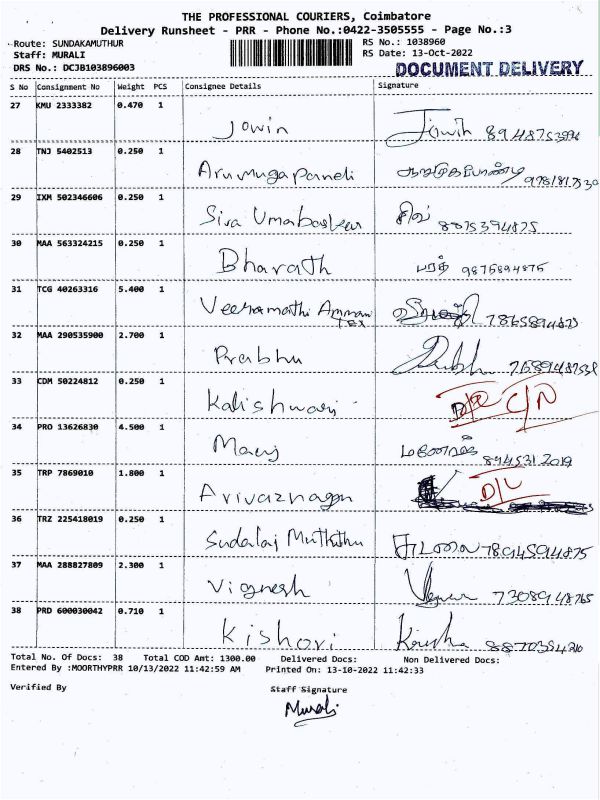 THE PROFESSIONAL COURIERS, Coimbatore
Delivery Runsheet - PRR - Phone No.:0422-3505555 - Page No.:3
Route: SUNDAKAMUTHUR RS No.: 1038960
Staff: MURALI RS Date: 13-Oct-2022
DRS No.: DCJB103896003 DOCUMENT DELIVERY
S No Consignment No Weight PCS Consignee Details Signature
27 KMU 2333382 0.470 1
Jowin Jowin
28 TNJ 5402513 0.250 1
Arumugapandi
29 IXM 502346606 0.250 1
Siva Umabaskar சிவ 8875394875
30 MAA 563324215 0.250 1
Bharath பரத் 9875894875
31 TCG 40263316 5.400 1
Veeramathi Amman TEX
32 MAA 290535900 2.700 1
Prabhu
33 CDM 50224812 0.250 1
Kalishwari C/N
34 PRO 13626830 4.500 1
Manoj
35 TRP 7869010 1.800 1
Arivazhagan D/L
36 TRZ 225418019 0.250 1
Sudalai Muththu சுடலை 7894594875
37 MAA 288827809 2.300 1
Vignesh 7308948765
38 PRD 600030042 0.710 1
Kishori
Total No. Of Docs: 38 Total COD Amt: 1300.00 Delivered Docs: Non Delivered Docs:
Entered By :MOORTHYPRR 10/13/2022 11:42:59 AM Printed On: 13-10-2022 11:42:33
Verified By Staff Signature
Murali